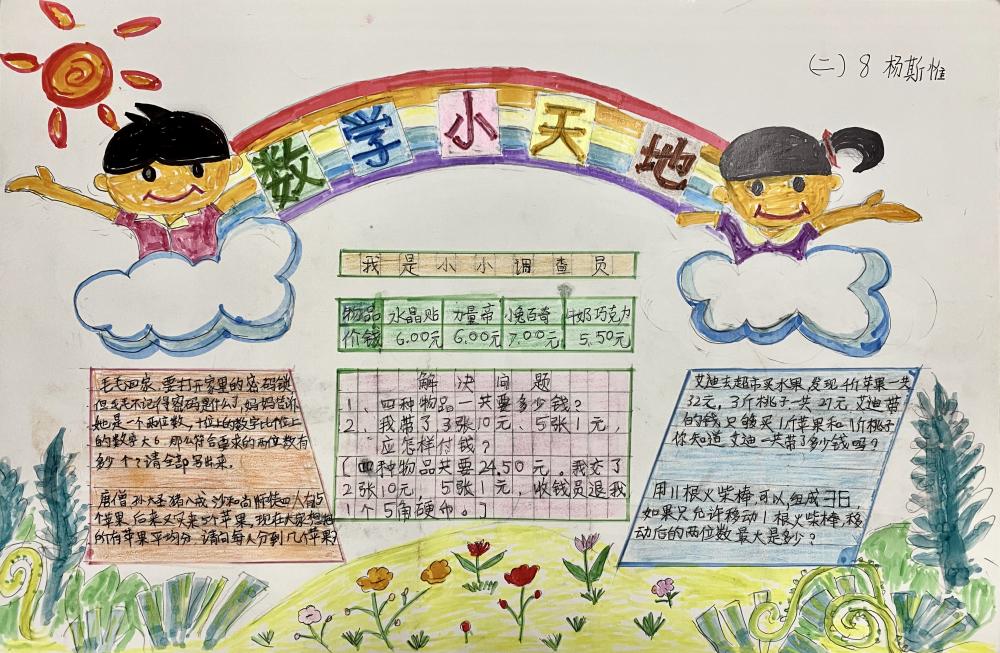 (二)8 杨斯惟
数学小天地
我是小小调查员
物品 水晶贴 力量帝 小兔百奇 牛奶巧克力
价钱 6.00元 6.00元 7.00元 5.50元
毛毛回家,要打开家里的密码锁
但毛毛不记得密码是什么了,妈妈告诉
她是一个两位数,十位上的数字比个位上
的数字大6.那么符合要求的两位数有
多少个?请全部写出来。
唐僧、孙大圣、猪八戒、沙和尚师徒四人有5
个苹果,后来又买来3个苹果,现在大家想把
所有苹果平均分.请问每人分到几个苹果?
解决问题
1、四种物品一共要多少钱?
2、我带了3张10元、5张1元,
应怎样付钱?
[四种物品共要24.50元。我交了
2张10元,5张1元,收钱员退我
1个5角硬币。]
艾迪去超市买水果,发现4斤苹果一共
32元,3斤桃子一共27元,艾迪带
的钱只够买1斤苹果和1斤桃子
你知道艾迪一共带了多少钱吗?
用11根火柴棒,可以组成
如果只允许移动1根火柴棒,移
动后的两位数最大是多少?